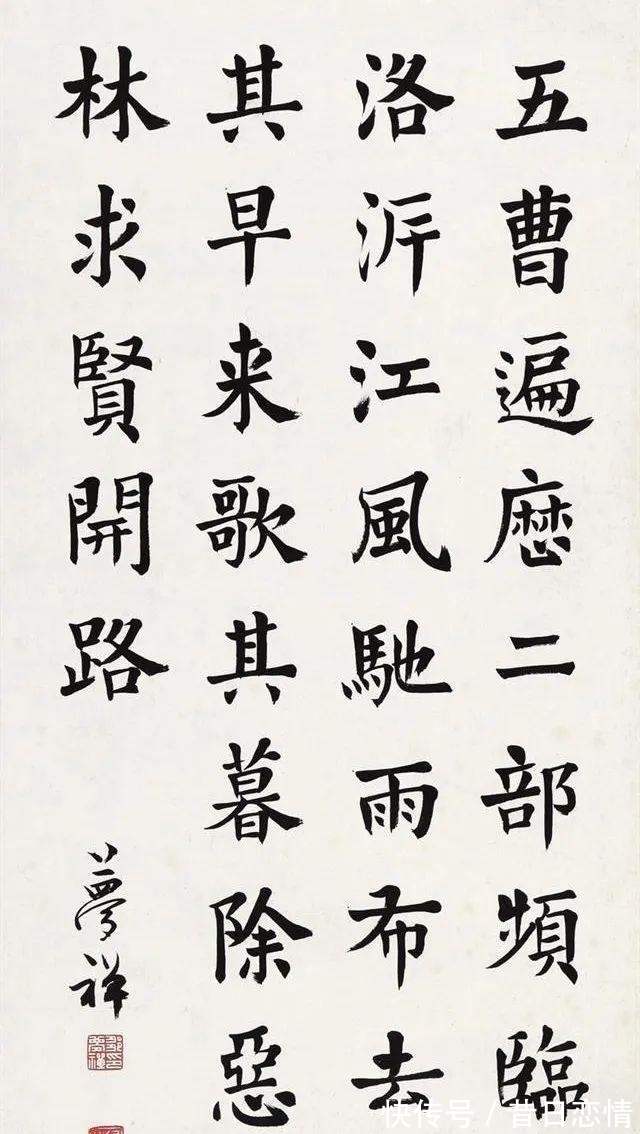 五曹遍歷二部頻臨
洛汧江風馳雨布去
其早来歌其暮除惡
林求賢開路
夢祥
快传号/昔日恋情